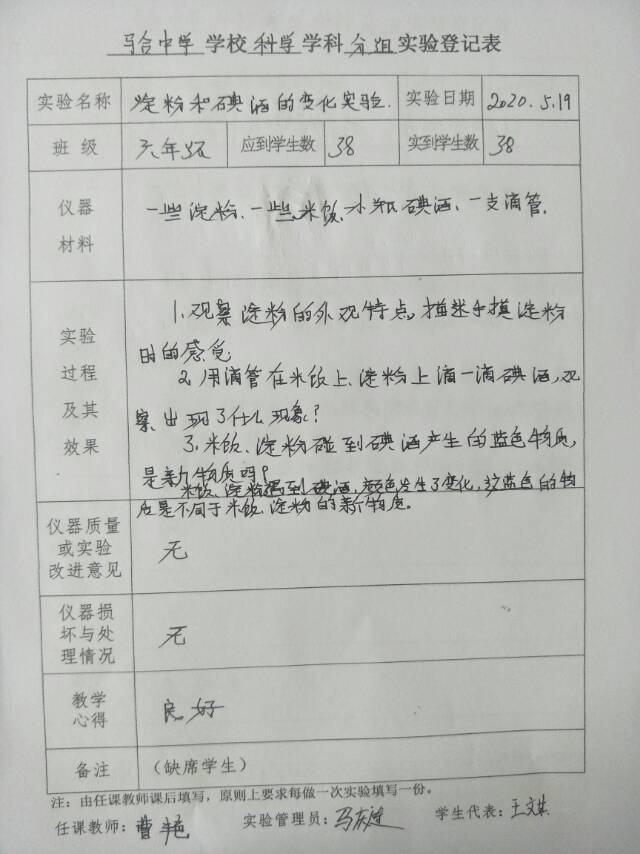 马合中学学校科学学科分组实验登记表
实验名称 淀粉和碘酒的变化实验. 实验日期 2020.5.19
班 级 六年级 应到学生数 38 实到学生数 38
仪器
材料
一些淀粉、一些米饭、小瓶碘酒、一支滴管.
实验
过程
及其
效果
1.观察淀粉的外观特点,描述手摸淀粉
时的感受
2.用滴管在米饭上、淀粉上滴一滴碘酒,观
察出现了什么现象?
3.米饭、淀粉碰到碘酒产生的蓝色物质,
是新物质吗?
米饭、淀粉遇到碘酒,颜色发生了变化,这蓝色的物
质是不同于米饭、淀粉的新物质。
仪器质量
或实验
改进意见
无
仪器损
坏与处
理情况
无
教学
心得
良好
备注 (缺席学生)
注:由任课教师课后填写,原则上要求每做一次实验填写一份。
任课教师:曹艳 实验管理员: 学生代表: